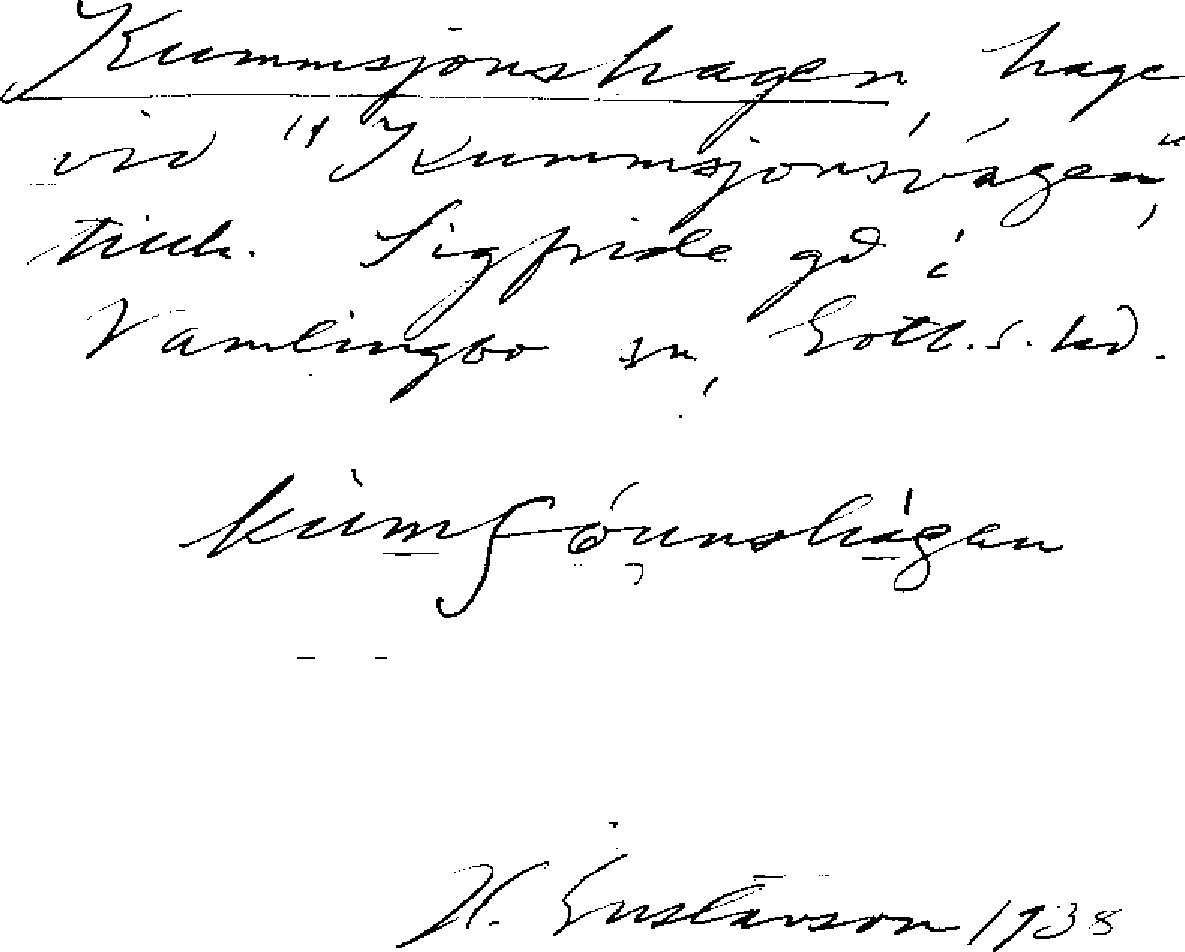 Kummsjonshagen, hage
vid "Kummsjonsvägen",
tillh. Sigfride gd i
Vamlingbo sn, Gotl. s. hd.
H. Gustavson 1938